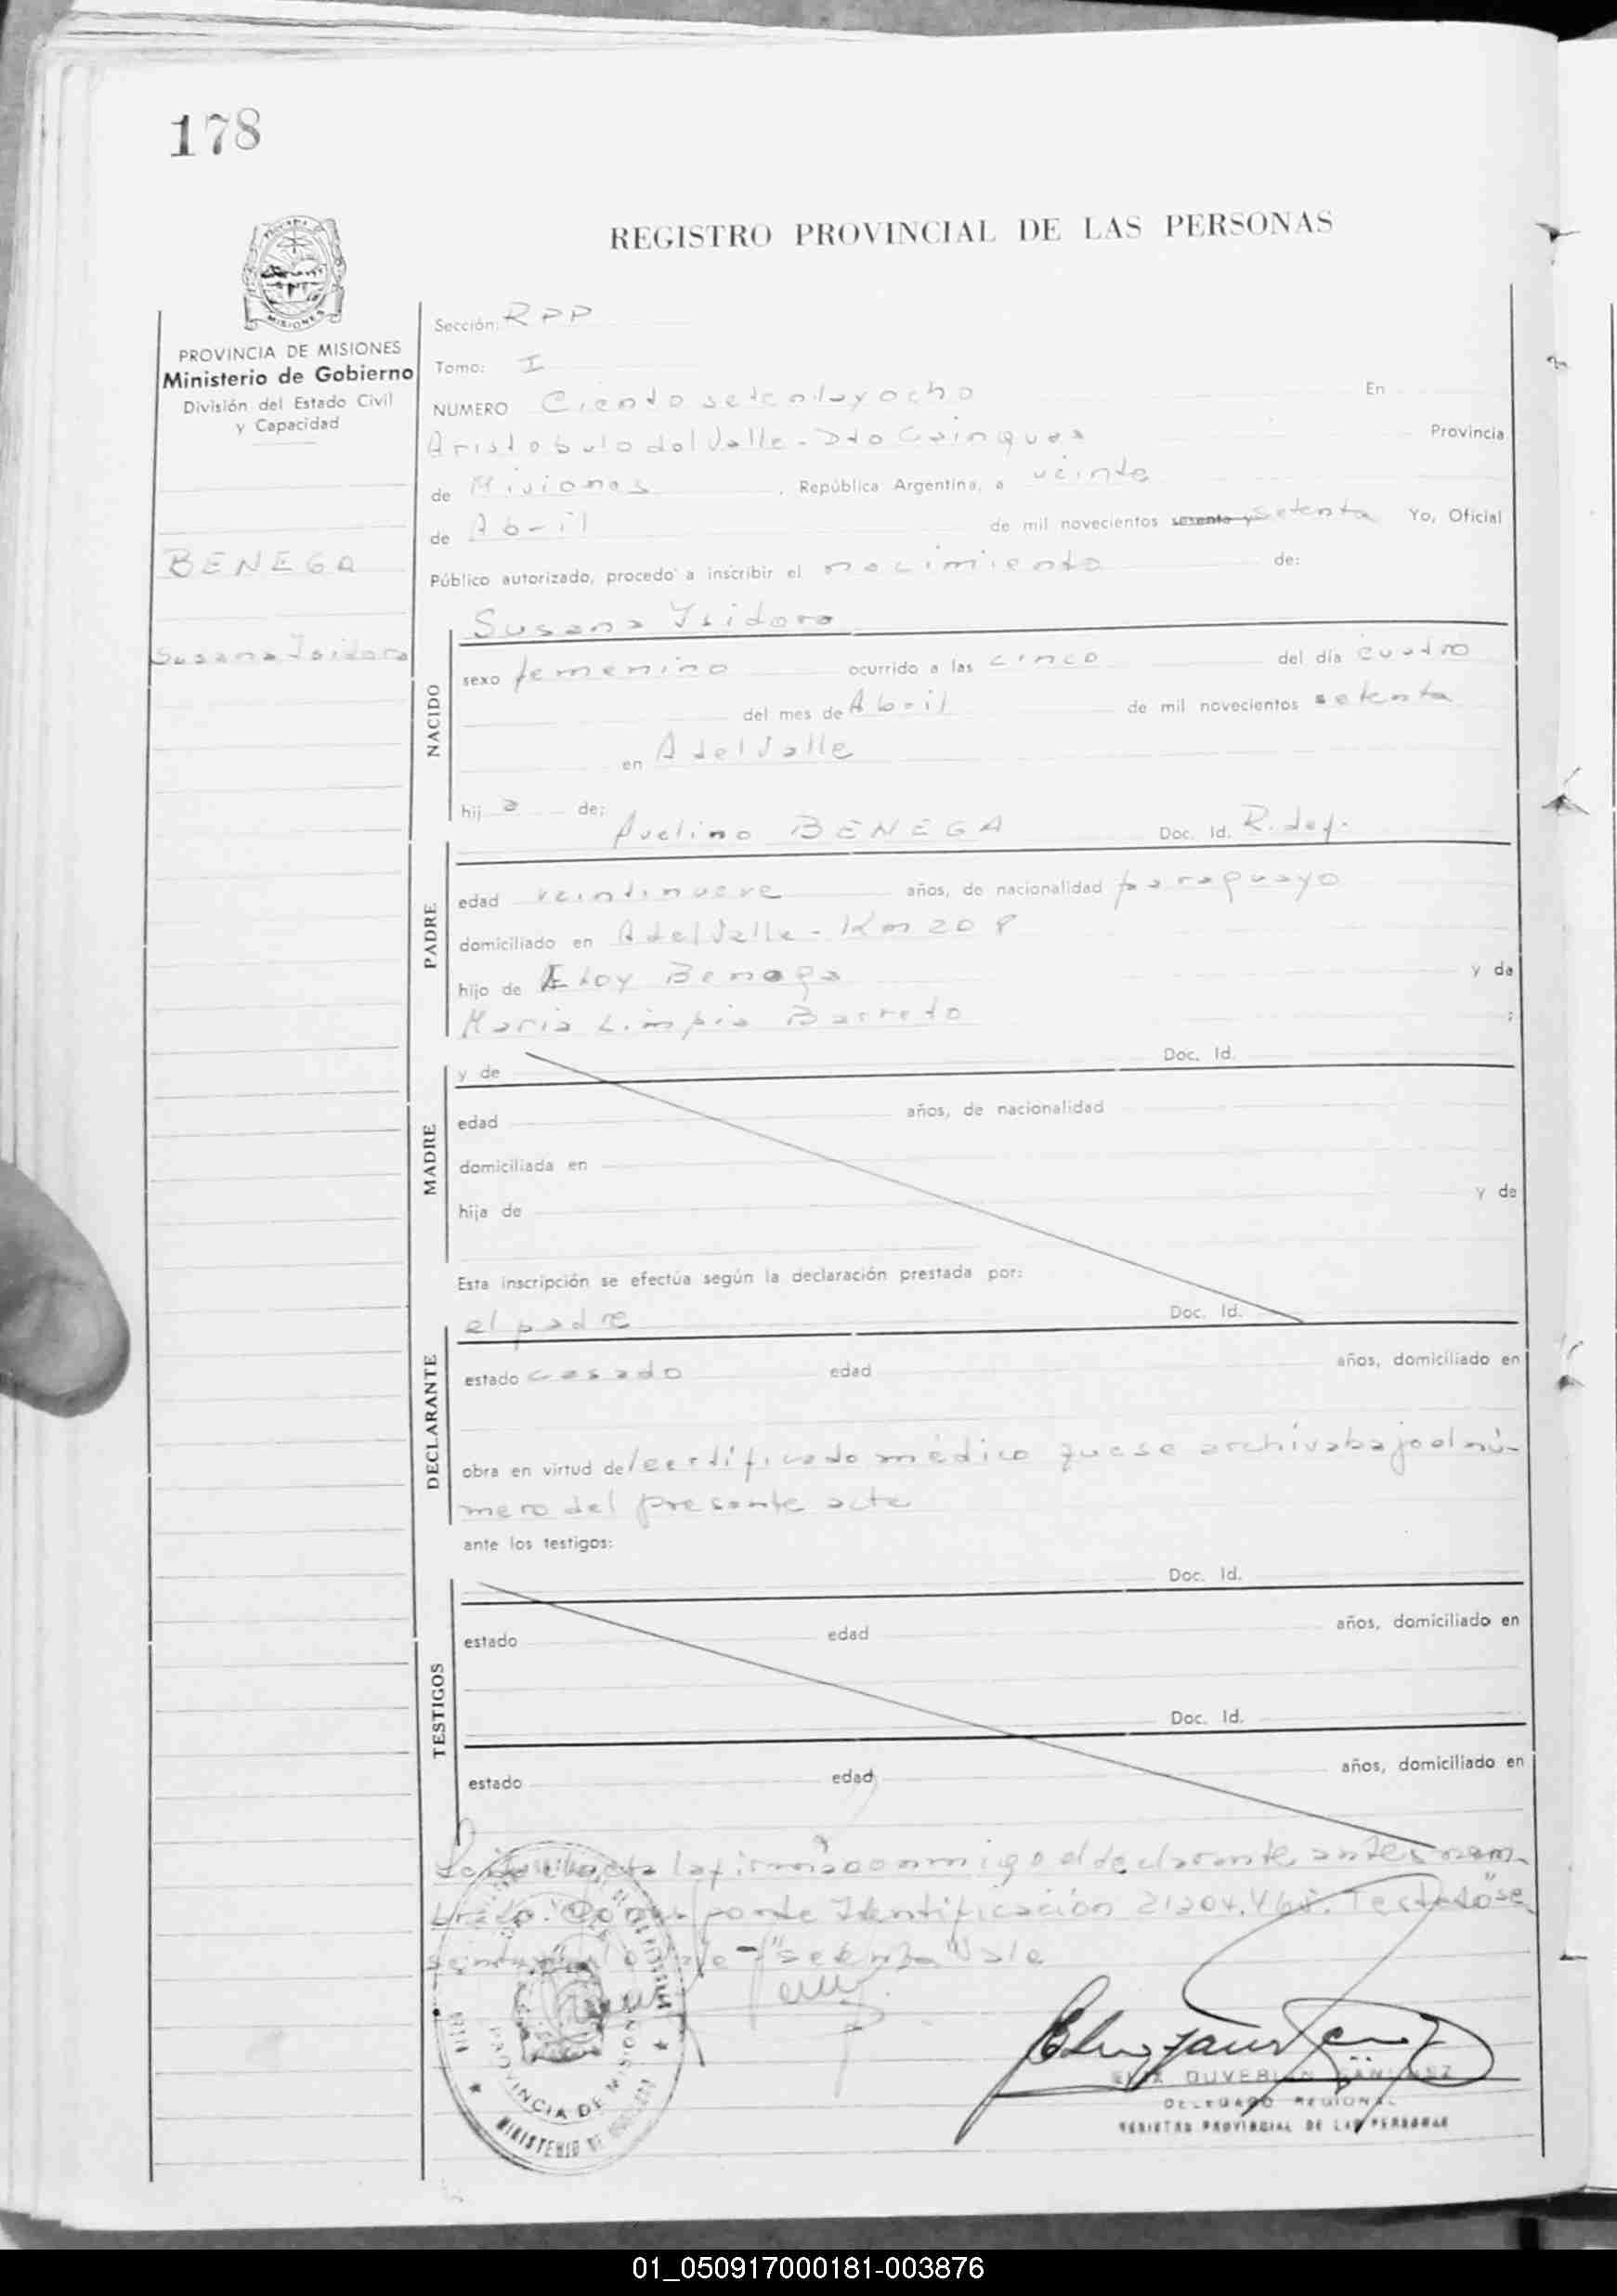 178
REGISTRO PROVINCIAL DE LAS PERSONAS
MISIONES
PROVINCIA DE MISIONES
Ministerio de Gobierno
División del Estado Civil
y Capacidad
BENEGA
Susana Isidora
Sección: RPP
Tomo: I
NUMERO Ciento setenta y ocho En
Aristobulo del Valle - Dto Cainguas Provincia
de Misiones , República Argentina, a veinte
de Abril de mil novecientos sesenta y setenta Yo, Oficial
Público autorizado, procedo a inscribir el nacimiento de:
Susana Isidora
NACIDO
sexo femenino ocurrido a las cinco del día cuatro
del mes de Abril de mil novecientos setenta
en A del Valle
hij a de:
Avelino BENEGA Doc. Id. R. def.
PADRE
edad veintinueve años, de nacionalidad paraguayo
domiciliado en A del Valle - Km 208
hijo de Eloy Benega y de
Maria Limpia Barreto ;
MADRE
y de Doc. Id.
edad años, de nacionalidad
domiciliada en
hija de y de
Esta inscripción se efectúa según la declaración prestada por:
el padre Doc. Id.
DECLARANTE
estado casado edad años, domiciliado en
obra en virtud del certificado médico que se archiva bajo el nú-
mero del presente acta
ante los testigos:
TESTIGOS
Doc. Id.
estado edad años, domiciliado en
Doc. Id.
estado edad años, domiciliado en
acta la firma conmigo el declarante antes nom-
Identificación Testado "se
"setenta" Vale
PROVINCIA DE MISIONES
MINISTERIO DE
DUVER
DELEGADO REGIONAL
REGISTRO PROVINCIAL DE LAS PERSONAS
01_050917000181-003876